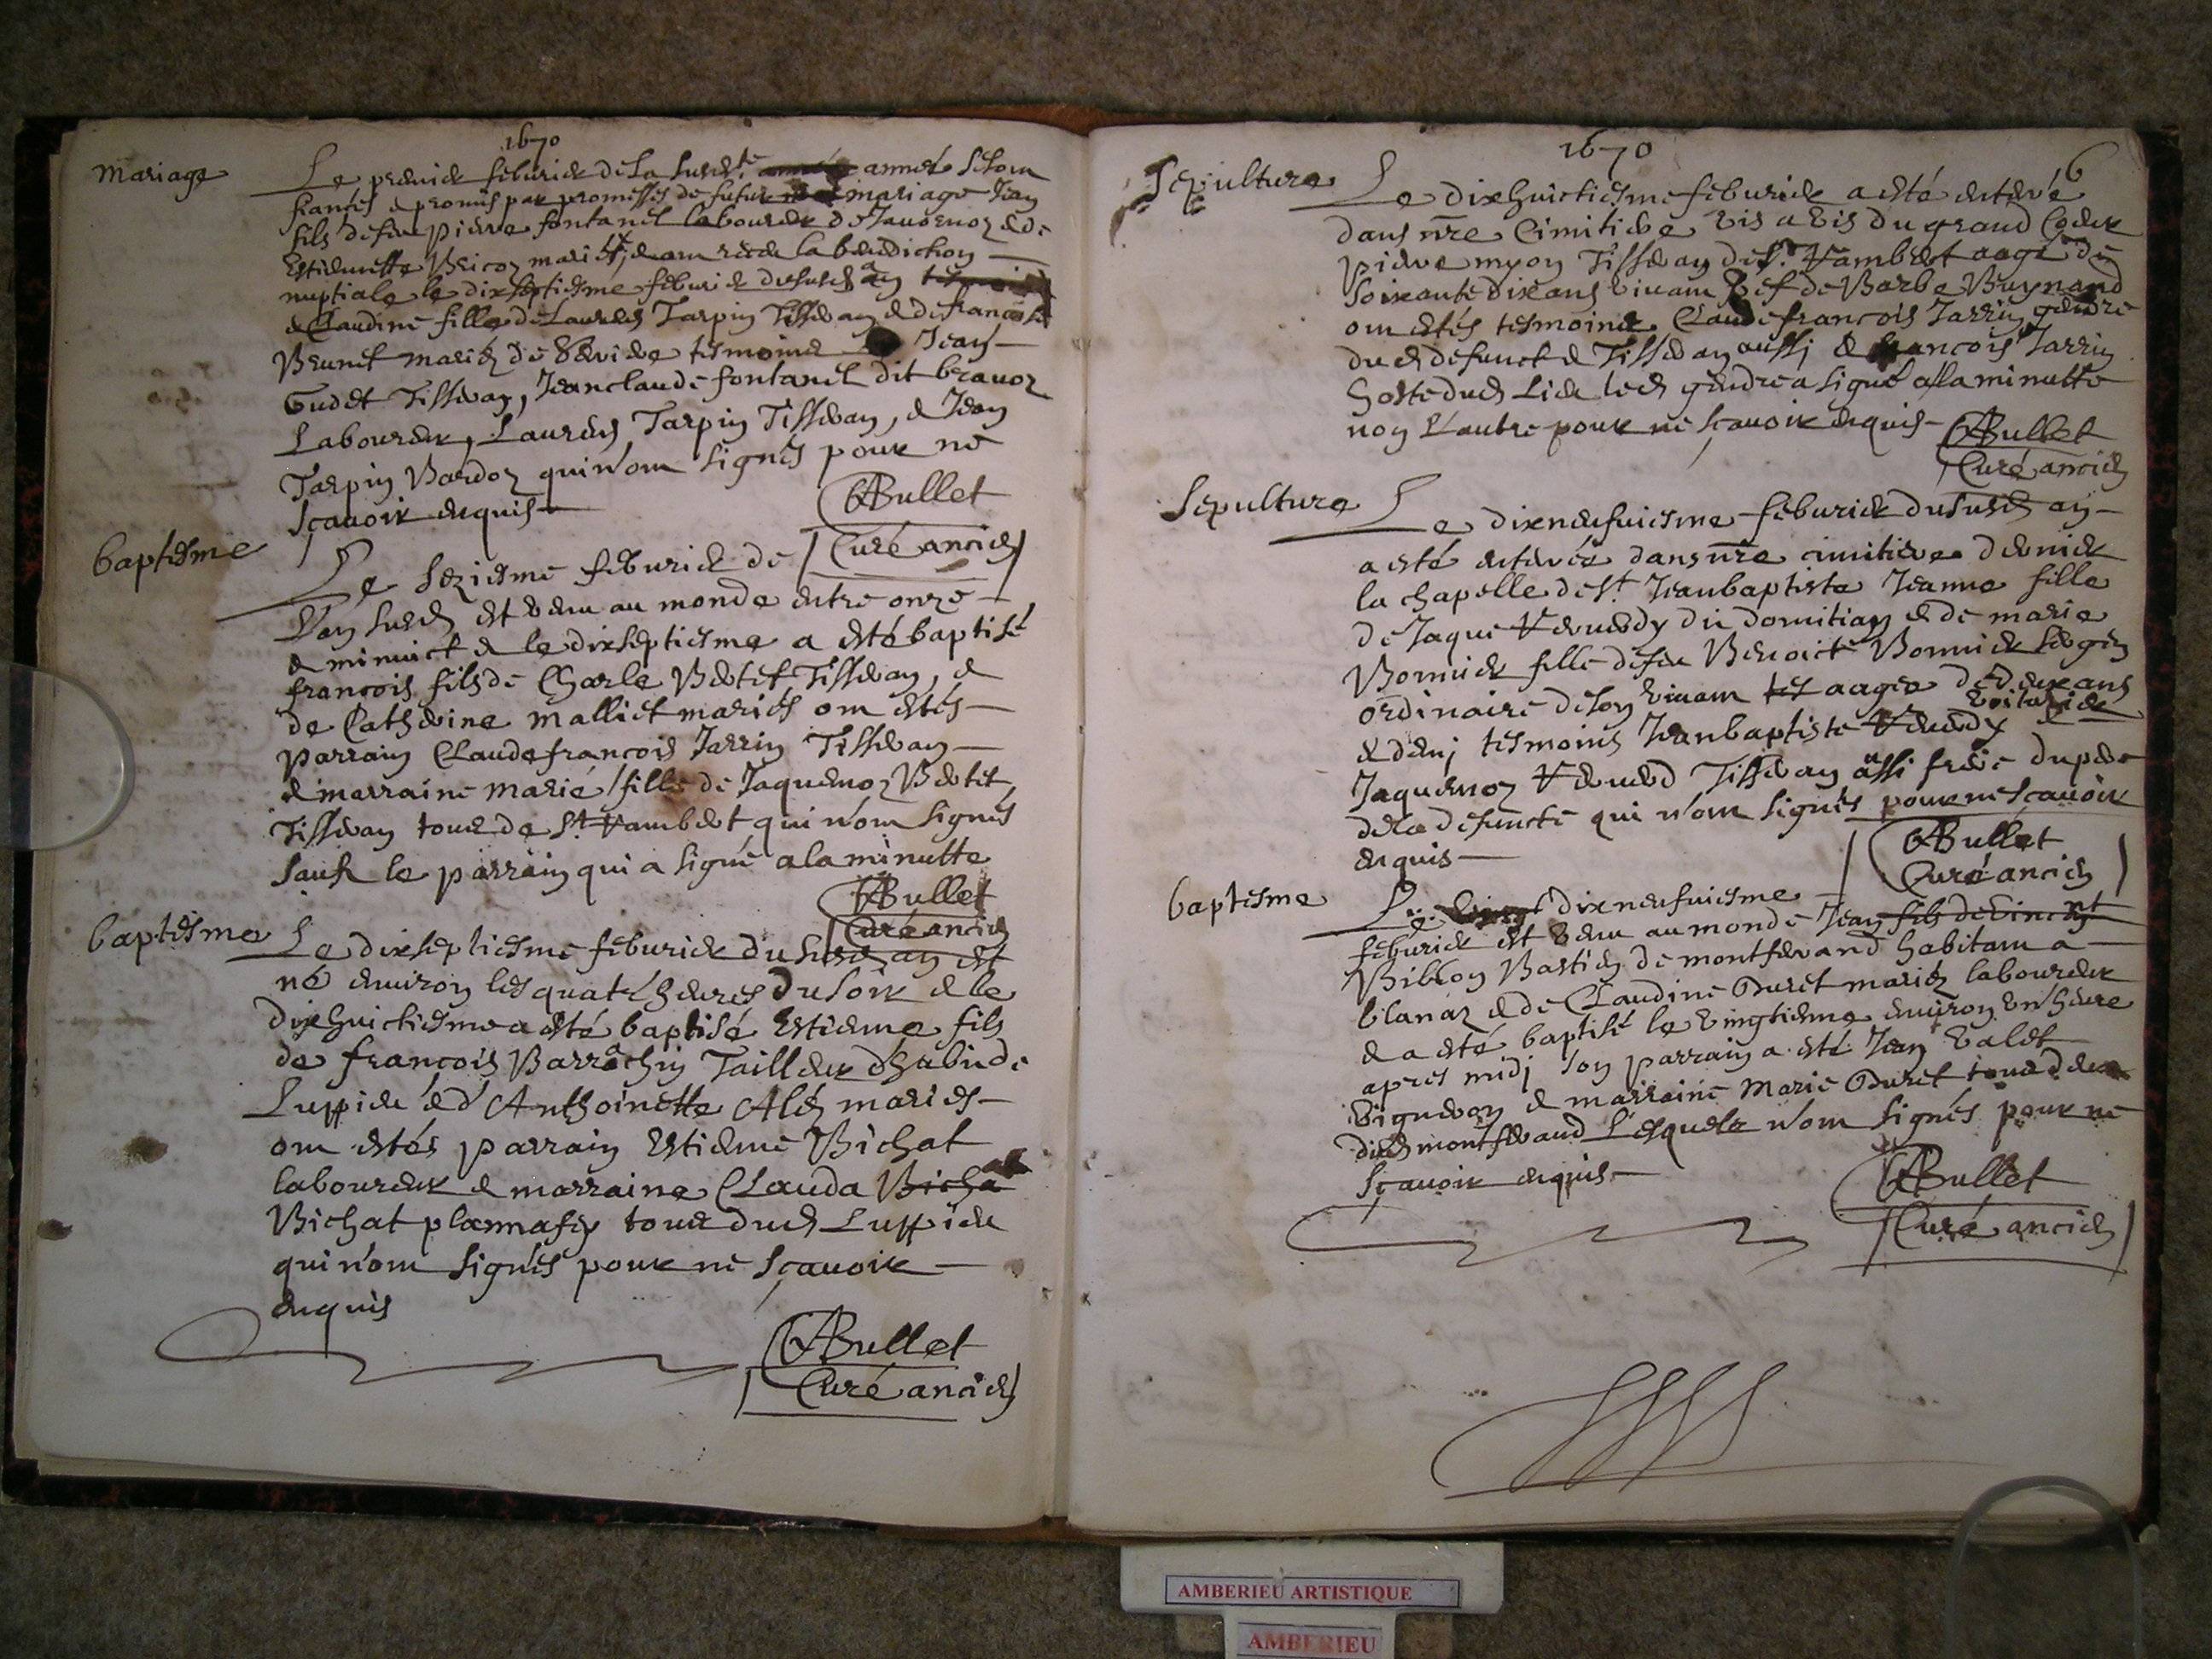 1670
Mariage
Le premier feburier de la susd.te année annee se sont
fiancés & promis par promesses de futur mariage Jean
fils de feu Pierre fontanel laboureur de & de
Estiennette mariés, & ont receu la benediction
nuptiale le dixseptiesme feburier du susd an
& Claudine fille de Laurens Tarpin Tisseran & de francoise
Brunet mariez de tesmoins Jean
Gudet Tisseran, Jeanclaude fontanel dit
Laboureur, Laurens Tarpin Tisseran, & Jean
Tarpin qui n'ont signés pour ne
scauoir enquis
ABullet
Curé ancien
baptesme
Le seziesme feburier de
l'an susd est venu au monde entre onze
& minuict & le dixseptiesme a esté baptisé
francois fils de Charle Bertet Tisseran, &
de Catherine malliet mariés ont estés
parrain Claudefrancois Jarrin Tisseran
& marraine marie fille de Jaquemoz Bertet
Tisseran tous de St Rambert qui n'ont signés
sauf le parrain qui a signé a la minutte
ABullet
Curé ancien
baptesme
Le dixseptiesme feburier du susd an est
né enuiron les quatre heures du soir & le
dixhuictiesme a esté baptisé Estienne fils
de francois Barrachin Tailleur d'habit de
Luppieu & d'Anthoinette mariés
ont estés parrain Estienne Bichat
laboureur & marraine Clauda Bicha
Bichat tous dud Luppieu
qui n'ont signés pour ne scauoir
enquis
ABullet
Curé ancien
1670
6
Sepulture
Le dixhuictiesme feburier a esté enterré
dans nre Cimitiere vis a vis du grand
pierre myon Tisseran de St Rambert aagé de
soixante dix ans viuant de Barbe Buynand
ont estés tesmoins Claudefrancois Jarrin gendre
dud defunct & Tisseran aussi & francois Jarrin
hoste dud lieu led gendre a signé a la minutte
non l'autre pour ne scauoir enquis
ABullet
Curé ancien
Sepulture
Le dixneufuiesme feburier du susd an
a esté enterrée dans nre cimitiere dernier
la chapelle de St Jeanbaptiste Jeanne fille
de Jaque du domitian & de marie
Bonnier fille de feu Benoict Bonnier
ordinaire de son viuant tes aagee de deux ans
& demj tesmoins Jeanbaptiste
Jaquemoz Tisseran assi frere du pere
de la defuncte qui n'ont signés pour ne scauoir
enquis
ABullet
Curé ancien
baptesme
Le vingt dixneufuiesme
feburier est venu au monde Jean fils de vincent
Bastien de montferrand habitant a
blanaz & de Claudine Duret mariez laboureur
& a esté baptisé le vingtiesme enuiron vn' heure
apres midj son parrain a esté Jean Valet
vigneron & marraine Marie Duret tous deux
dud montferrand lesquels n'ont signés pour ne
scauoir enquis
ABullet
Curé ancien
AMBERIEU ARTISTIQUE
AMBERIEU